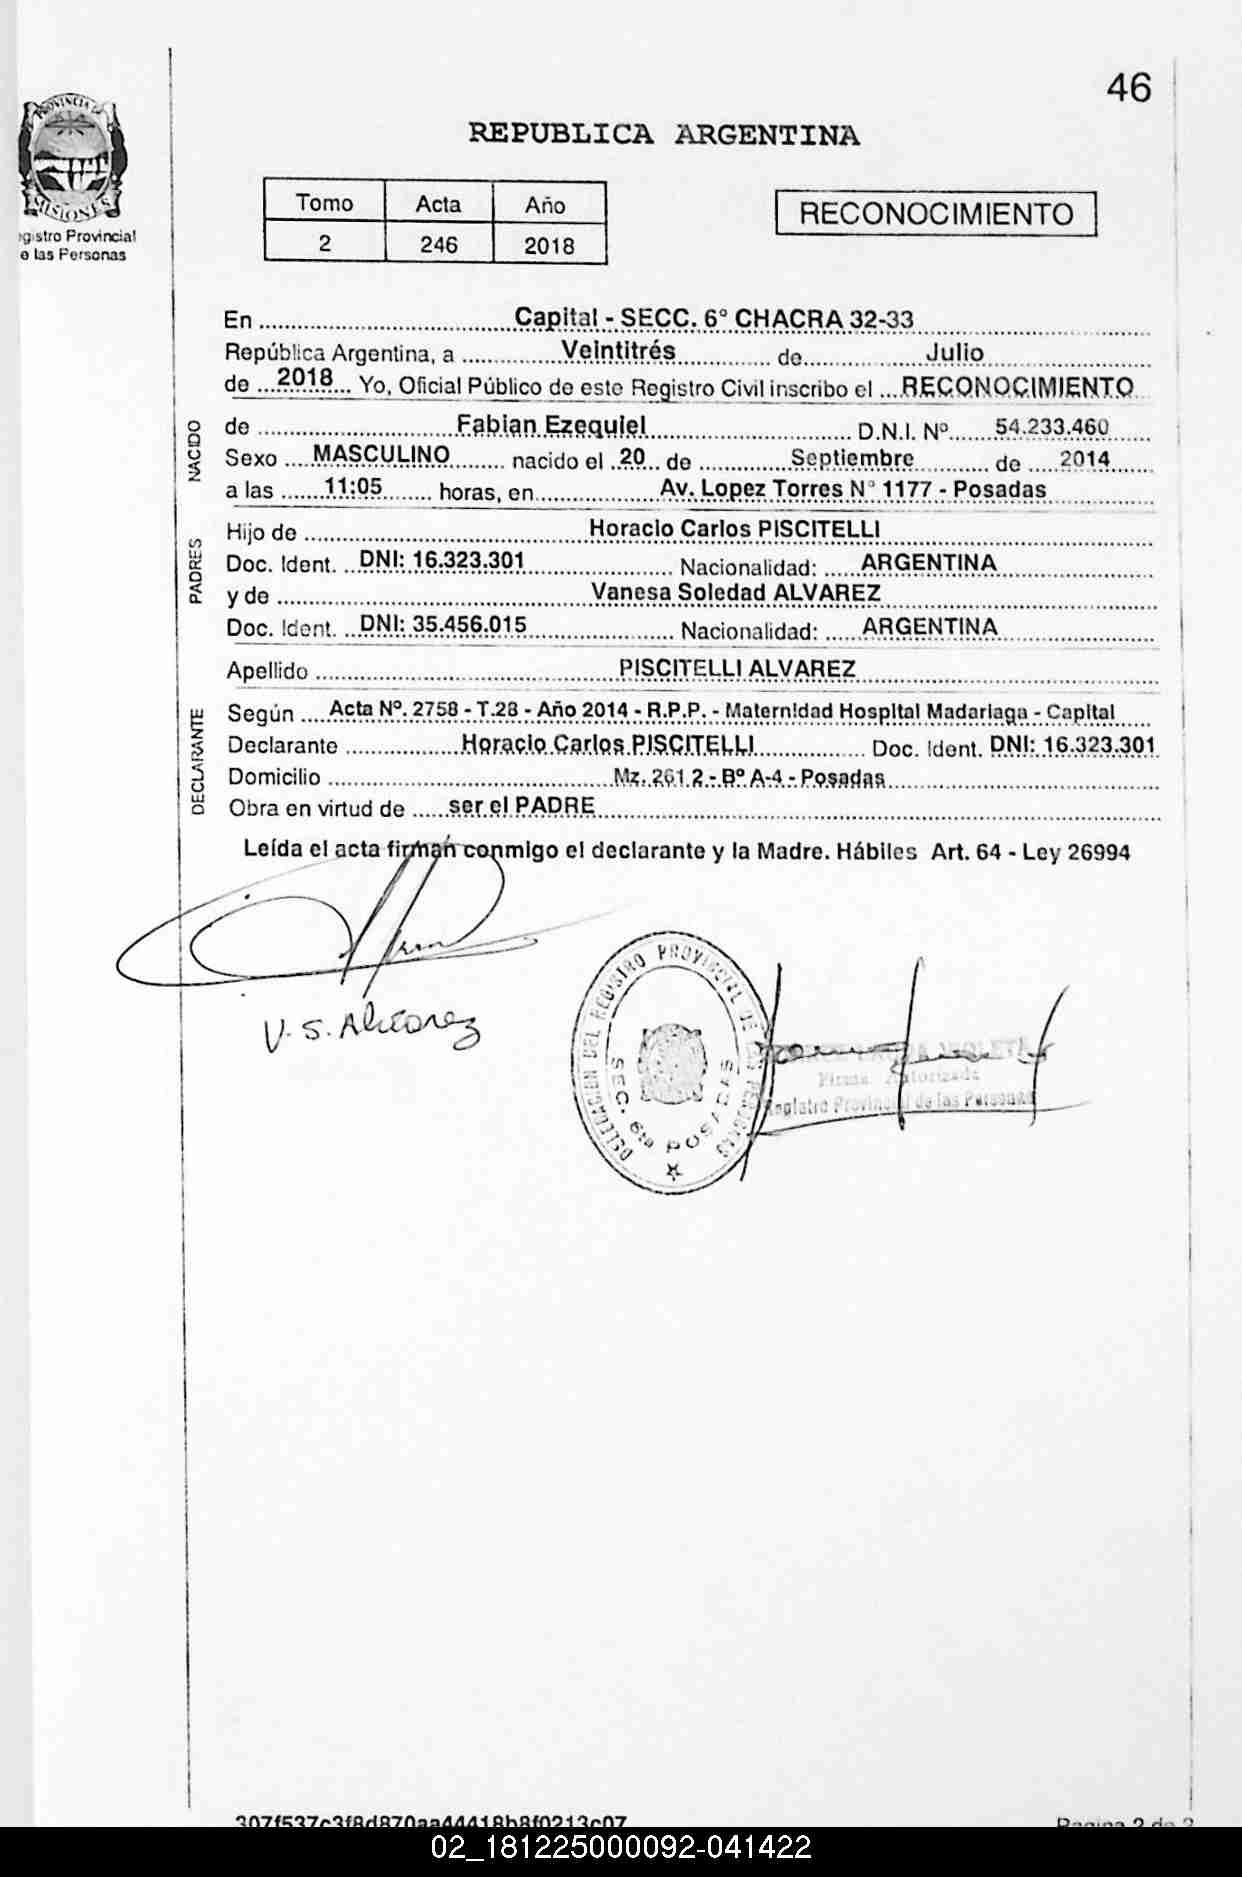 46
PROVINCIA DE
MISIONES
gistro Provincial
e las Personas
REPUBLICA ARGENTINA
Tomo Acta Año
2 246 2018
RECONOCIMIENTO
En Capital - SECC. 6° CHACRA 32-33
República Argentina, a Veintitrés de Julio
de 2018 Yo, Oficial Público de este Registro Civil inscribo el RECONOCIMIENTO
NACIDO
de Fabian Ezequiel D.N.I. Nº 54.233.460
Sexo MASCULINO nacido el 20 de Septiembre de 2014
a las 11:05 horas, en Av. Lopez Torres N° 1177 - Posadas
PADRES
Hijo de Horacio Carlos PISCITELLI
Doc. Ident. DNI: 16.323.301 Nacionalidad: ARGENTINA
y de Vanesa Soledad ALVAREZ
Doc. Ident. DNI: 35.456.015 Nacionalidad: ARGENTINA
Apellido PISCITELLI ALVAREZ
DECLARANTE
Según Acta Nº. 2758 - T.28 - Año 2014 - R.P.P. - Maternidad Hospital Madariaga - Capital
Declarante Horacio Carlos PISCITELLI Doc. Ident. DNI: 16.323.301
Domicilio Mz. 261 2 - Bº A-4 - Posadas
Obra en virtud de ser el PADRE
Leída el acta firman conmigo el declarante y la Madre. Hábiles Art. 64 - Ley 26994
V. S. Alvarez
DELEGACION DEL REGISTRO PROVINCIAL DE LAS PERSONAS
SEC. 6ta POSADAS
Firma Autorizada
Registro Provincial de las Personas
307f537c3f8d870aa44418b8f0213c07
Pagina 2 de 2
02_181225000092-041422